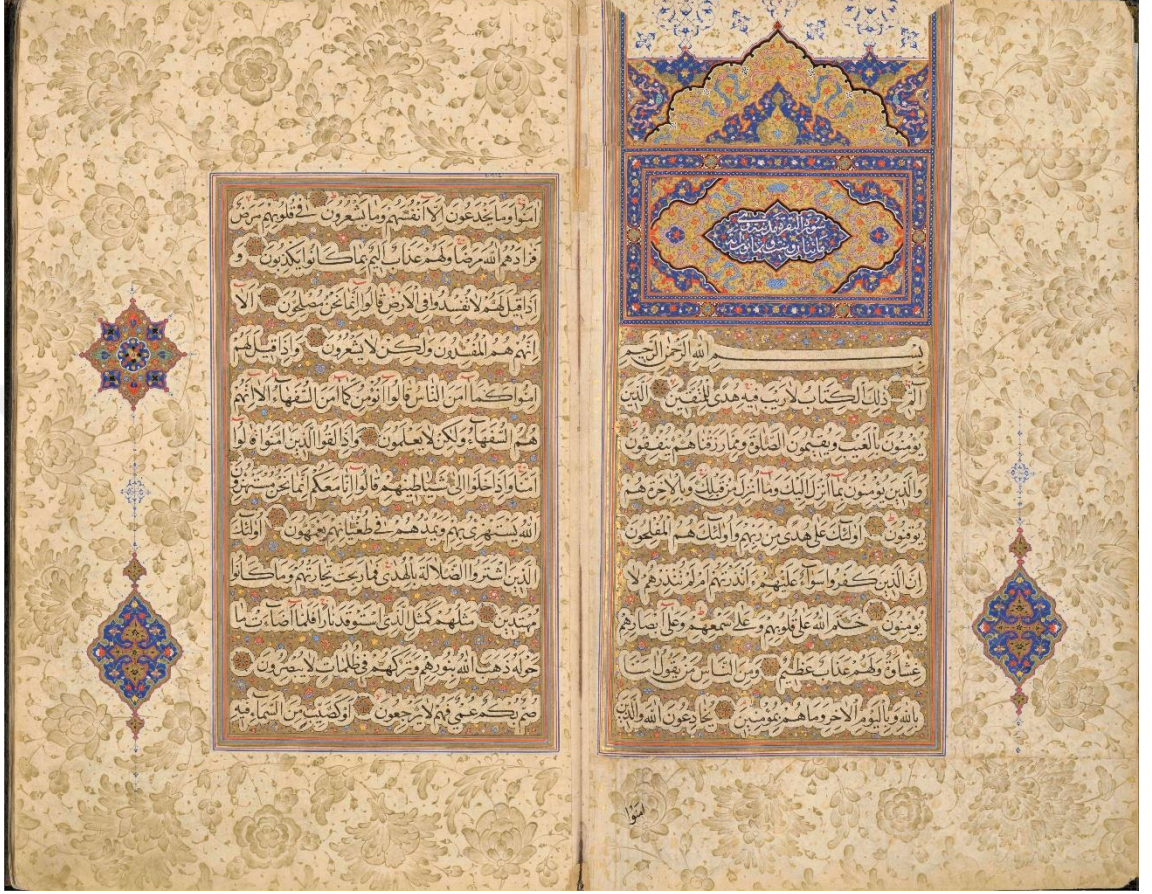 سورة البقرة مدنية وهي
مائتان وست وثمانون آية
بسم الله الرحمن الرحيم
الم ذلك الكتاب لا ريب فيه هدى للمتقين الذين
يؤمنون بالغيب ويقيمون الصلوة ومما رزقناهم ينفقون
والذين يؤمنون بما انزل اليك وما انزل من قبلك وبالاخرة هم
يوقنون اولئك على هدى من ربهم واولئك هم المفلحون
ان الذين كفروا سواء عليهم ءانذرتهم ام لم تنذرهم لا
يؤمنون ختم الله على قلوبهم وعلى سمعهم وعلى ابصارهم
غشاوة ولهم عذاب عظيم ومن الناس من يقول امنا
بالله وباليوم الاخر وما هم بمؤمنين يخادعون الله والذين
امنوا
امنوا وما يخدعون الا انفسهم وما يشعرون في قلوبهم مرض
فزادهم الله مرضا ولهم عذاب اليم بما كانوا يكذبون و
اذا قيل لهم لا تفسدوا في الارض قالوا انما نحن مصلحون الا
انهم هم المفسدون ولكن لا يشعرون واذا قيل لهم
امنوا كما امن الناس قالوا انؤمن كما امن السفهاء الا انهم
هم السفهاء ولكن لا يعلمون واذا لقوا الذين امنوا قالوا
امنا واذا خلوا الى شياطينهم قالوا انا معكم انما نحن مستهزؤن
الله يستهزئ بهم ويمدهم في طغيانهم يعمهون اولئك
الذين اشتروا الضلالة بالهدى فما ربحت تجارتهم وما كانوا
مهتدين مثلهم كمثل الذي استوقد نارا فلما اضاءت ما
حوله ذهب الله بنورهم وتركهم في ظلمات لا يبصرون
صم بكم عمي فهم لا يرجعون او كصيب من السماء فيه